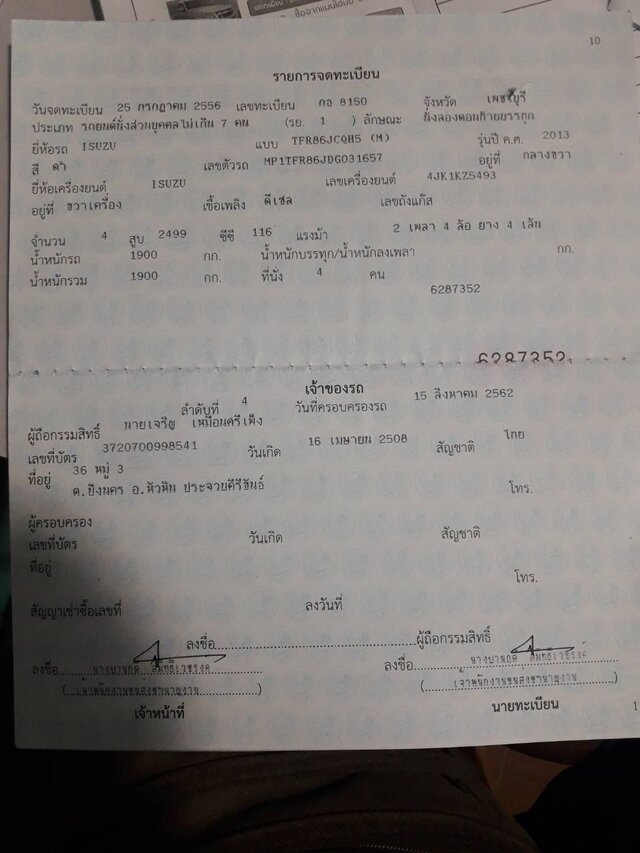 10
รายการจดทะเบียน
วันจดทะเบียน 25 กรกฎาคม 2556 เลขทะเบียน กธ 8150 จังหวัด เพชรบุรี
ประเภท รถยนต์นั่งส่วนบุคคลไม่เกิน 7 คน (รย. 1 ) ลักษณะ นั่งสองตอนท้ายบรรทุก
ยี่ห้อรถ ISUZU แบบ TFR86JCQH5 (M) รุ่นปี ค.ศ. 2013
สี ดำ เลขตัวรถ MP1TFR86JDG031657 อยู่ที่ กลางขวา
ยี่ห้อเครื่องยนต์ ISUZU เลขเครื่องยนต์ 4JK1KZ5493
อยู่ที่ ขวาเครื่อง เชื้อเพลิง ดีเซล เลขถังแก๊ส
จำนวน 4 สูบ 2499 ซีซี 116 แรงม้า 2 เพลา 4 ล้อ ยาง 4 เส้น
น้ำหนักรถ 1900 กก. น้ำหนักบรรทุก/น้ำหนักลงเพลา กก.
น้ำหนักรวม 1900 กก. ที่นั่ง 4 คน
6287352
6287352
เจ้าของรถ
ลำดับที่ 4 วันที่ครอบครองรถ 15 สิงหาคม 2562
ผู้ถือกรรมสิทธิ์ นายเจริญ เหมือนศรีเพ็ง
เลขที่บัตร 3720700998541 วันเกิด 16 เมษายน 2508 สัญชาติ ไทย
ที่อยู่ 36 หมู่ 3
ต.บึงนคร อ.หัวหิน ประจวบคีรีขันธ์ โทร.
ผู้ครอบครอง
เลขที่บัตร วันเกิด สัญชาติ
ที่อยู่
โทร.
สัญญาเช่าซื้อเลขที่ ลงวันที่
ลงชื่อ ผู้ถือกรรมสิทธิ์
ลงชื่อ ลงชื่อ
(เจ้าพนักงานขนส่งชำนาญงาน) (เจ้าพนักงานขนส่งชำนาญงาน)
เจ้าหน้าที่ นายทะเบียน